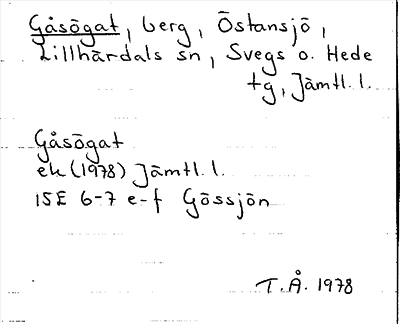 Gåsögat, berg, Östansjö,
Lillhärdals sn, Svegs o. Hede
tg, Jämtl. l.
Gåsögat
ek (1978) Jämtl. l.
15E 6-7 e-f Gössjön
T.Å. 1978